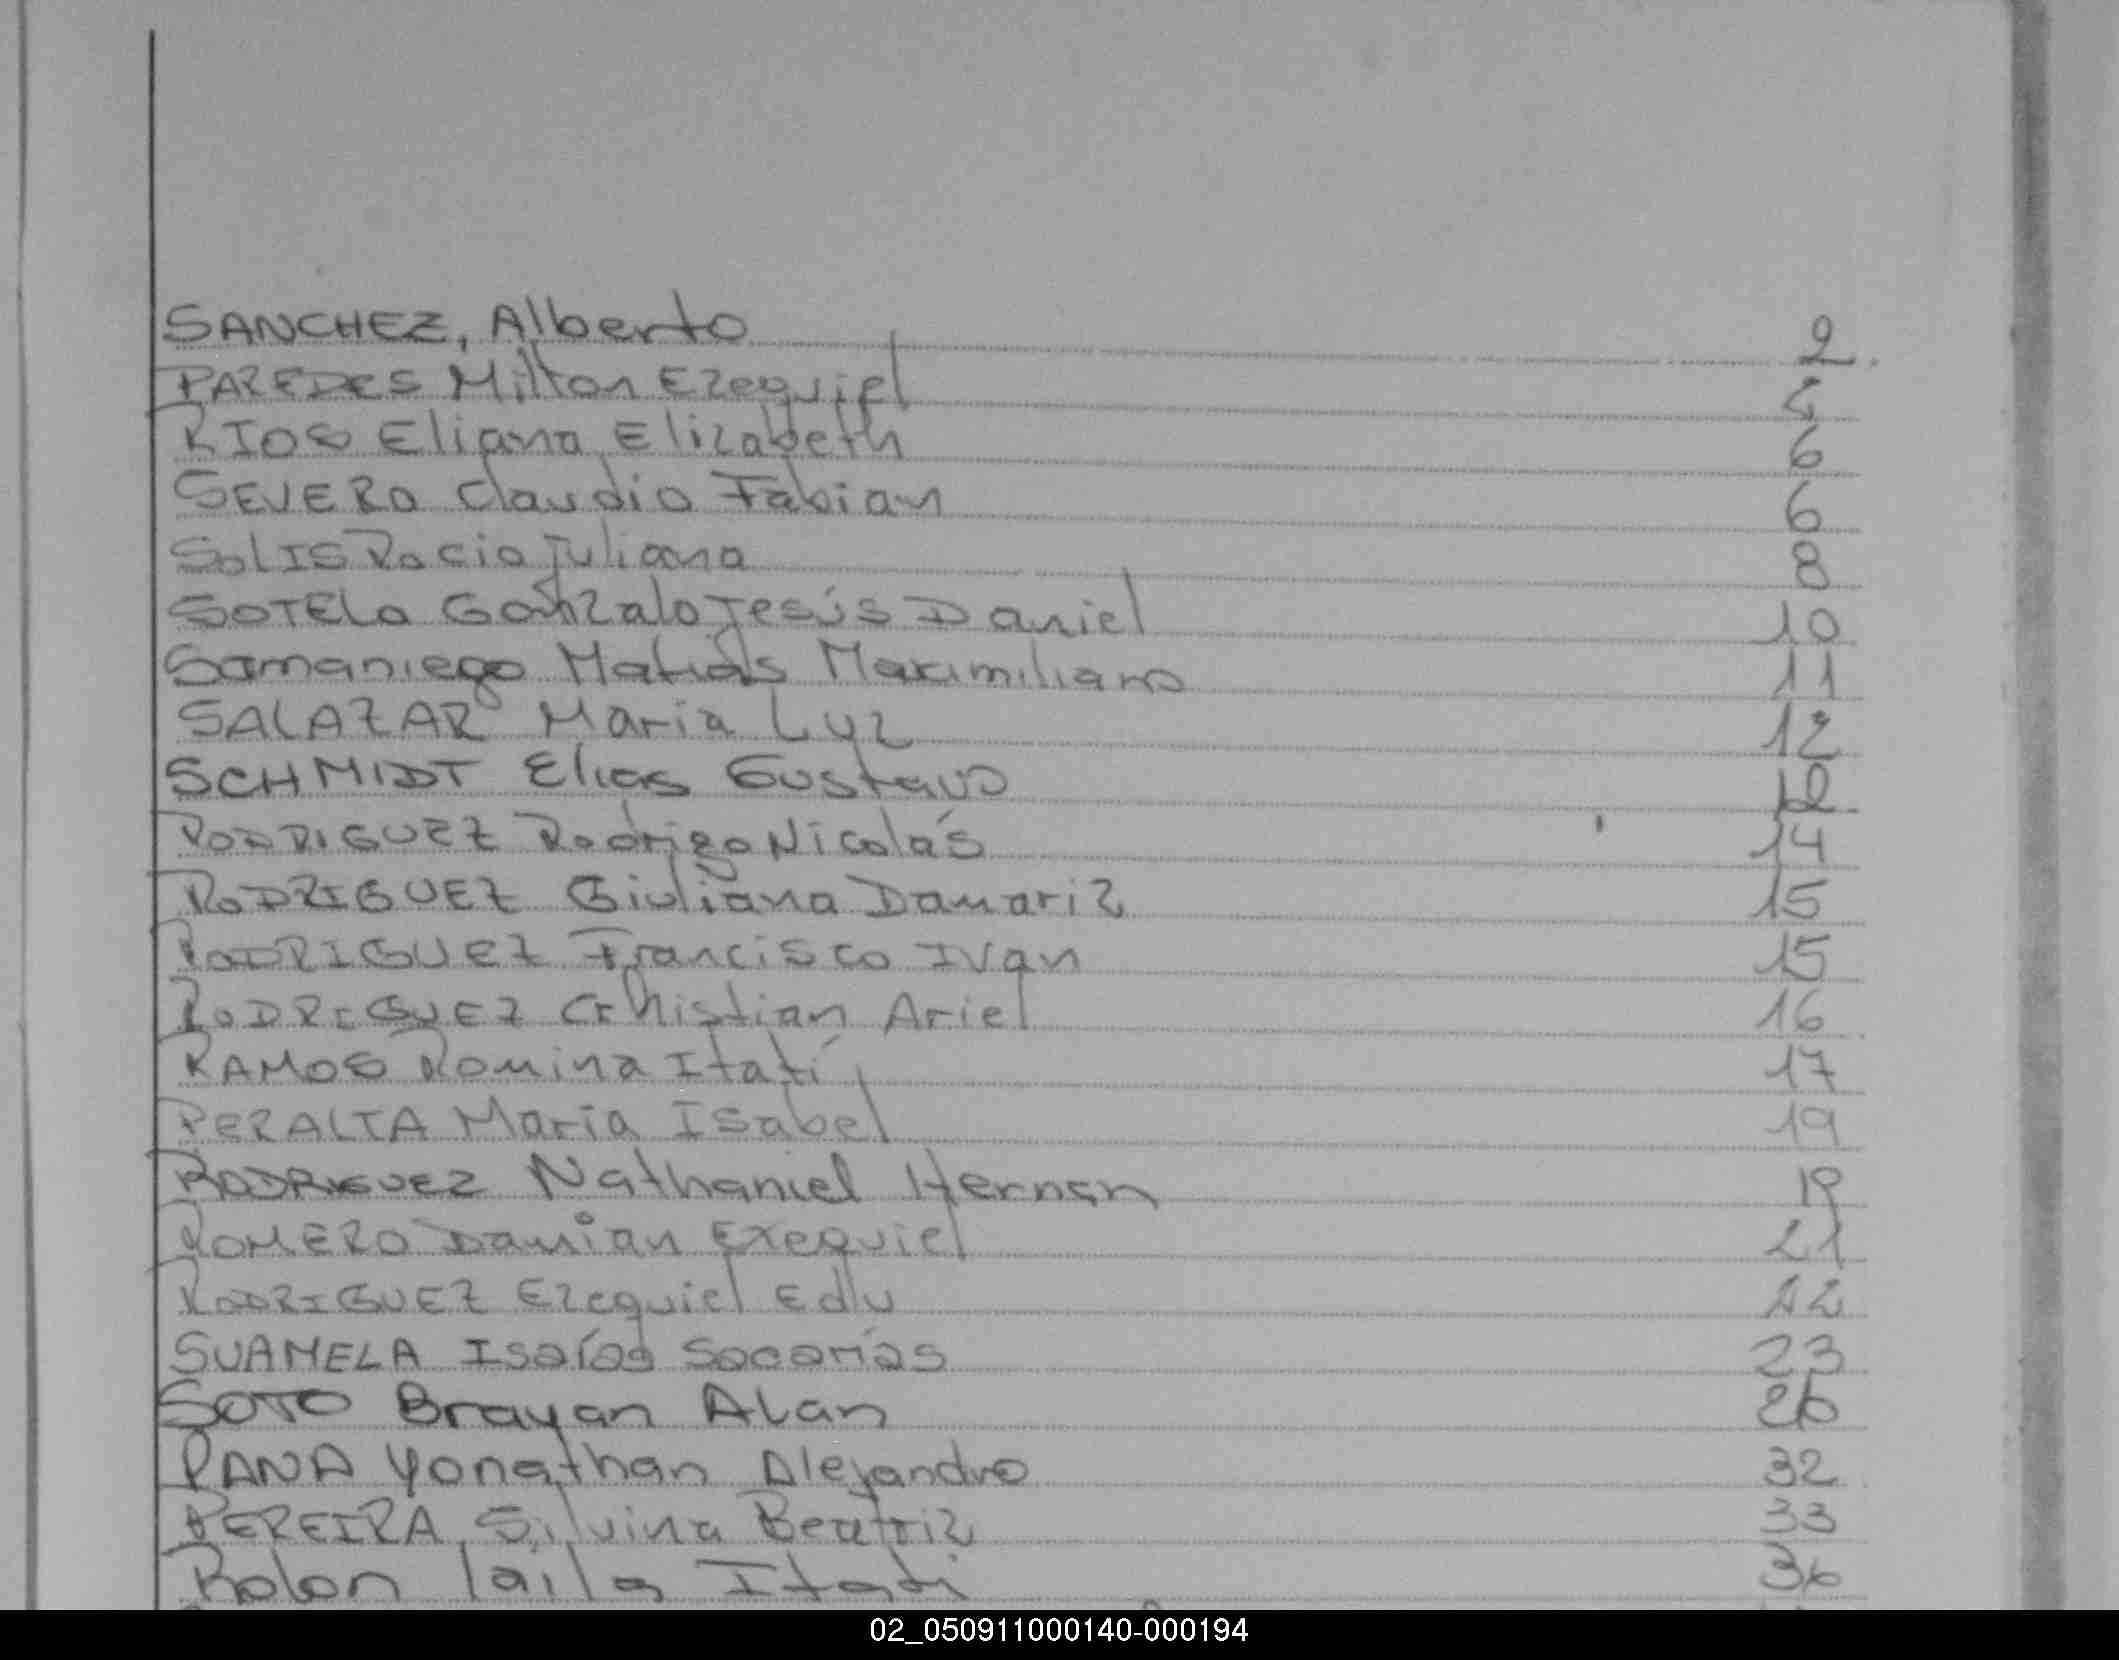 SANCHEZ, Alberto 2
PAREDES Milton Ezequiel
RIOS Eliana Elizabeth 6
SEVERO Claudio Fabian 6
SOLIS Rocio Juliana 8
SOTELO Gonzalo Jesús Daniel 10
Samaniego Matias Maximiliano 11
SALAZAR Maria Luz 12
SCHMIDT Elias Gustavo 12
RODRIGUEZ Rodrigo Nicolás 14
RODRIGUEZ Giuliana Damariz 15
RODRIGUEZ Francisco Ivan 15
RODRIGUEZ Ariel 16
RAMOS Romina Itatí 17
PERALTA Maria Isabel 19
RODRIGUEZ Nathaniel Hernan 19
ROMERO Damian Exequiel 21
RODRIGUEZ Ezequiel Edu 22
Isaías 23
SOTO Brayan Alan 26
Yonathan Alejandro 32
PEREIRA Silvina Beatriz 33
Rolon laila Itati 36
02_050911000140-000194